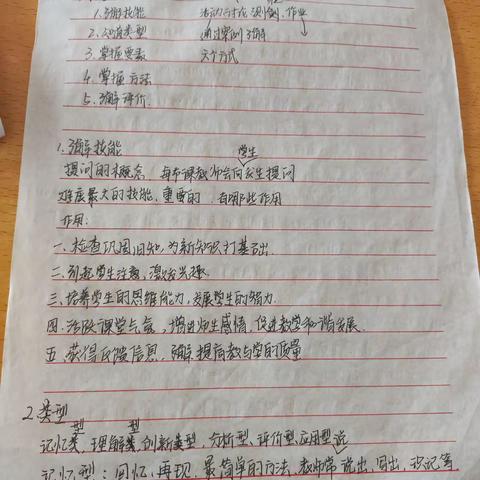 1. 理解技能 活动讨论 测例.作业
2. 知道类型 通过案例理解
3. 掌握要求 六个方式
4. 掌握方法
5. 理解评价.
1. 理解技能
学生
提问的概念 每节课教师会向学生提问
难度最大的技能, 重要的. 有哪些作用
作用:
一、检查巩固旧知, 为新知识打基础.
二、引起学生注意, 激发兴趣
三、培养学生的思维能力, 发展学生的智力.
四、活跃课堂气氛, 增进师生感情, 促进教学和谐发展.
五、获得反馈信息, 确保提高教与学的质量
2. 类型
型 型
记忆类, 理解类, 创新类型, 分析型、评价型、应用型
记忆型: 回忆、再现、最简单的方法、教师常说出、写出、识记等.